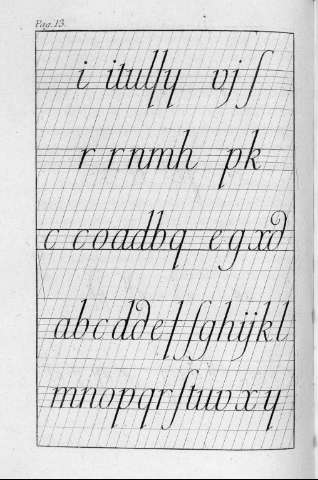 Pag. 13.
i itulſy vj ſ
r rnmh pk
c coadbq egxd
abcddefſghijkl
mnopqrſtuvxy